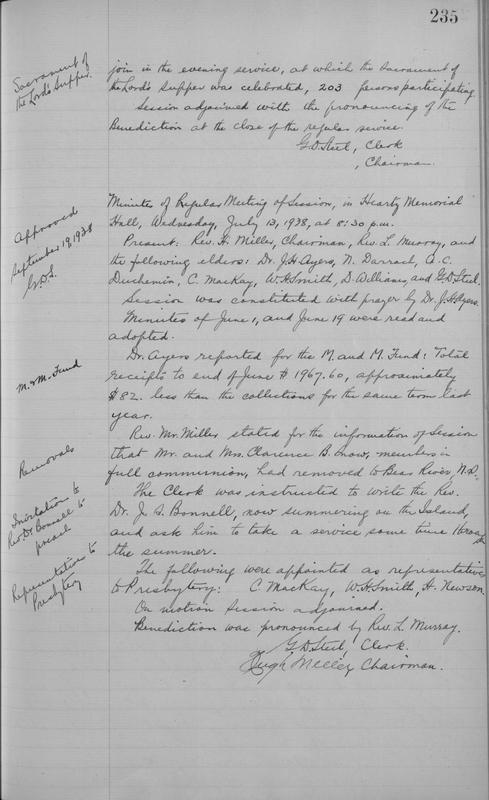 235
Sacrament of
the Lord's Supper.
join in the evening service, at which the Sacrament of
the Lord's Supper was celebrated, 203 persons participating
Session adjourned with the pronouncing of the
Benediction at the close of the regular service.
G D Steel, Clerk
, Chairman.
Approved
September 19, 1938
G.D.S.
Minutes of Regular Meeting of Session, in Heartz Memorial
Hall, Wednesday, July 13, 1938, at 8:30 p.m.
Present: Rev. H. Miller, Chairman, Rev. L. Murray, and
the following elders: Dr. J.H. Ayers, N. Darrach, A.C.
Duchemin, C. MacKay, W.H. Smith, D. Williams, and G.D. Steel.
Session was constituted with prayer by Dr. J.H. Ayers.
Minutes of June 1, and June 19 were read and
adopted.
M. & M. Fund
Dr. Ayers reported for the M. and M. Fund: Total
receipts to end of June $1967.60, approximately
$82. less than the collections for the same term last
year.
Removals
Rev. Mr. Miller stated for the information of Session
that Mr. and Mrs. Clarence B. Snow, members in
full communion, had removed to Bear River, N.S.
Invitation to
Rev Dr. Bonnell to
preach
The Clerk was instructed to write the Rev.
Dr. J. S. Bonnell, now summering on the Island,
and ask him to take a service some time through
the summer.
Representation to
Presbytery
The following were appointed as representative
to Presbytery: C. MacKay, W.H. Smith, H. Newson.
On motion Session adjourned.
Benediction was pronounced by Rev. L. Murray.
G D Steel, Clerk.
Hugh Miller, Chairman.